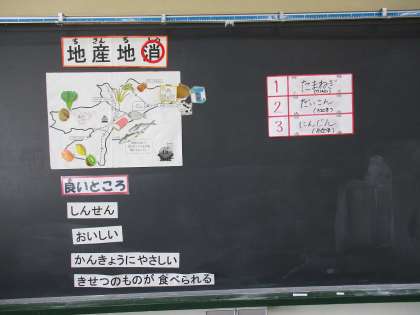 地産地消
ち さん ち しょう
良いところ
しんせん
おいしい
かんきょうにやさしい
きせつのものが 食べられる
1 たまねぎ
2 だいこん
3 にんじん